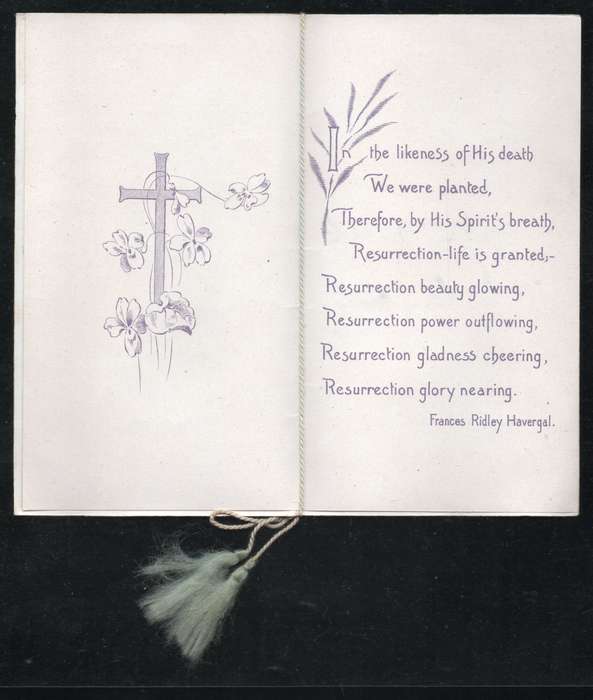 In the likeness of His death
We were planted,
Therefore, by His Spirit's breath,
Resurrection-life is granted;-
Resurrection beauty glowing,
Resurrection power outflowing,
Resurrection gladness cheering,
Resurrection glory nearing.
Frances Ridley Havergal.